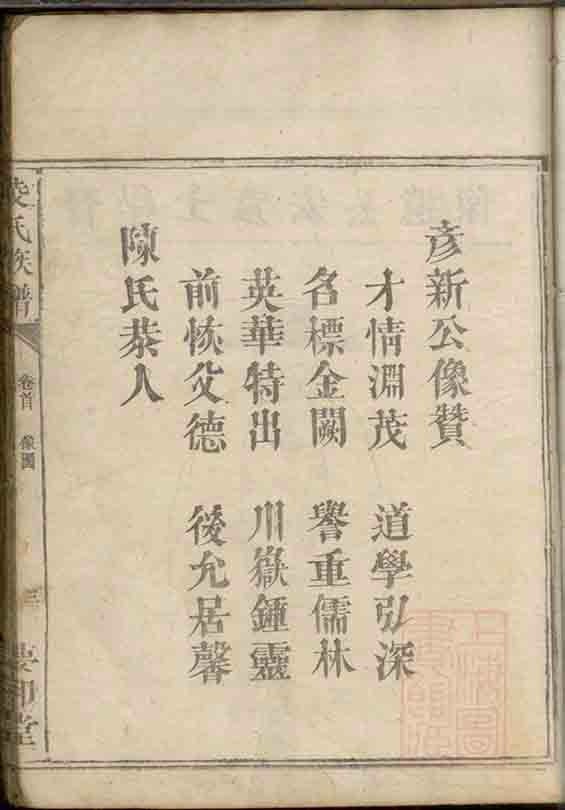 彦新公像贊
才情淵茂 道學弘深
名標金闕 譽重儒林
英華特出 川嶽鍾靈
前恢父德 後允居馨
陳氏恭人
氏族譜
卷首 像圖
三
堂
上海圖